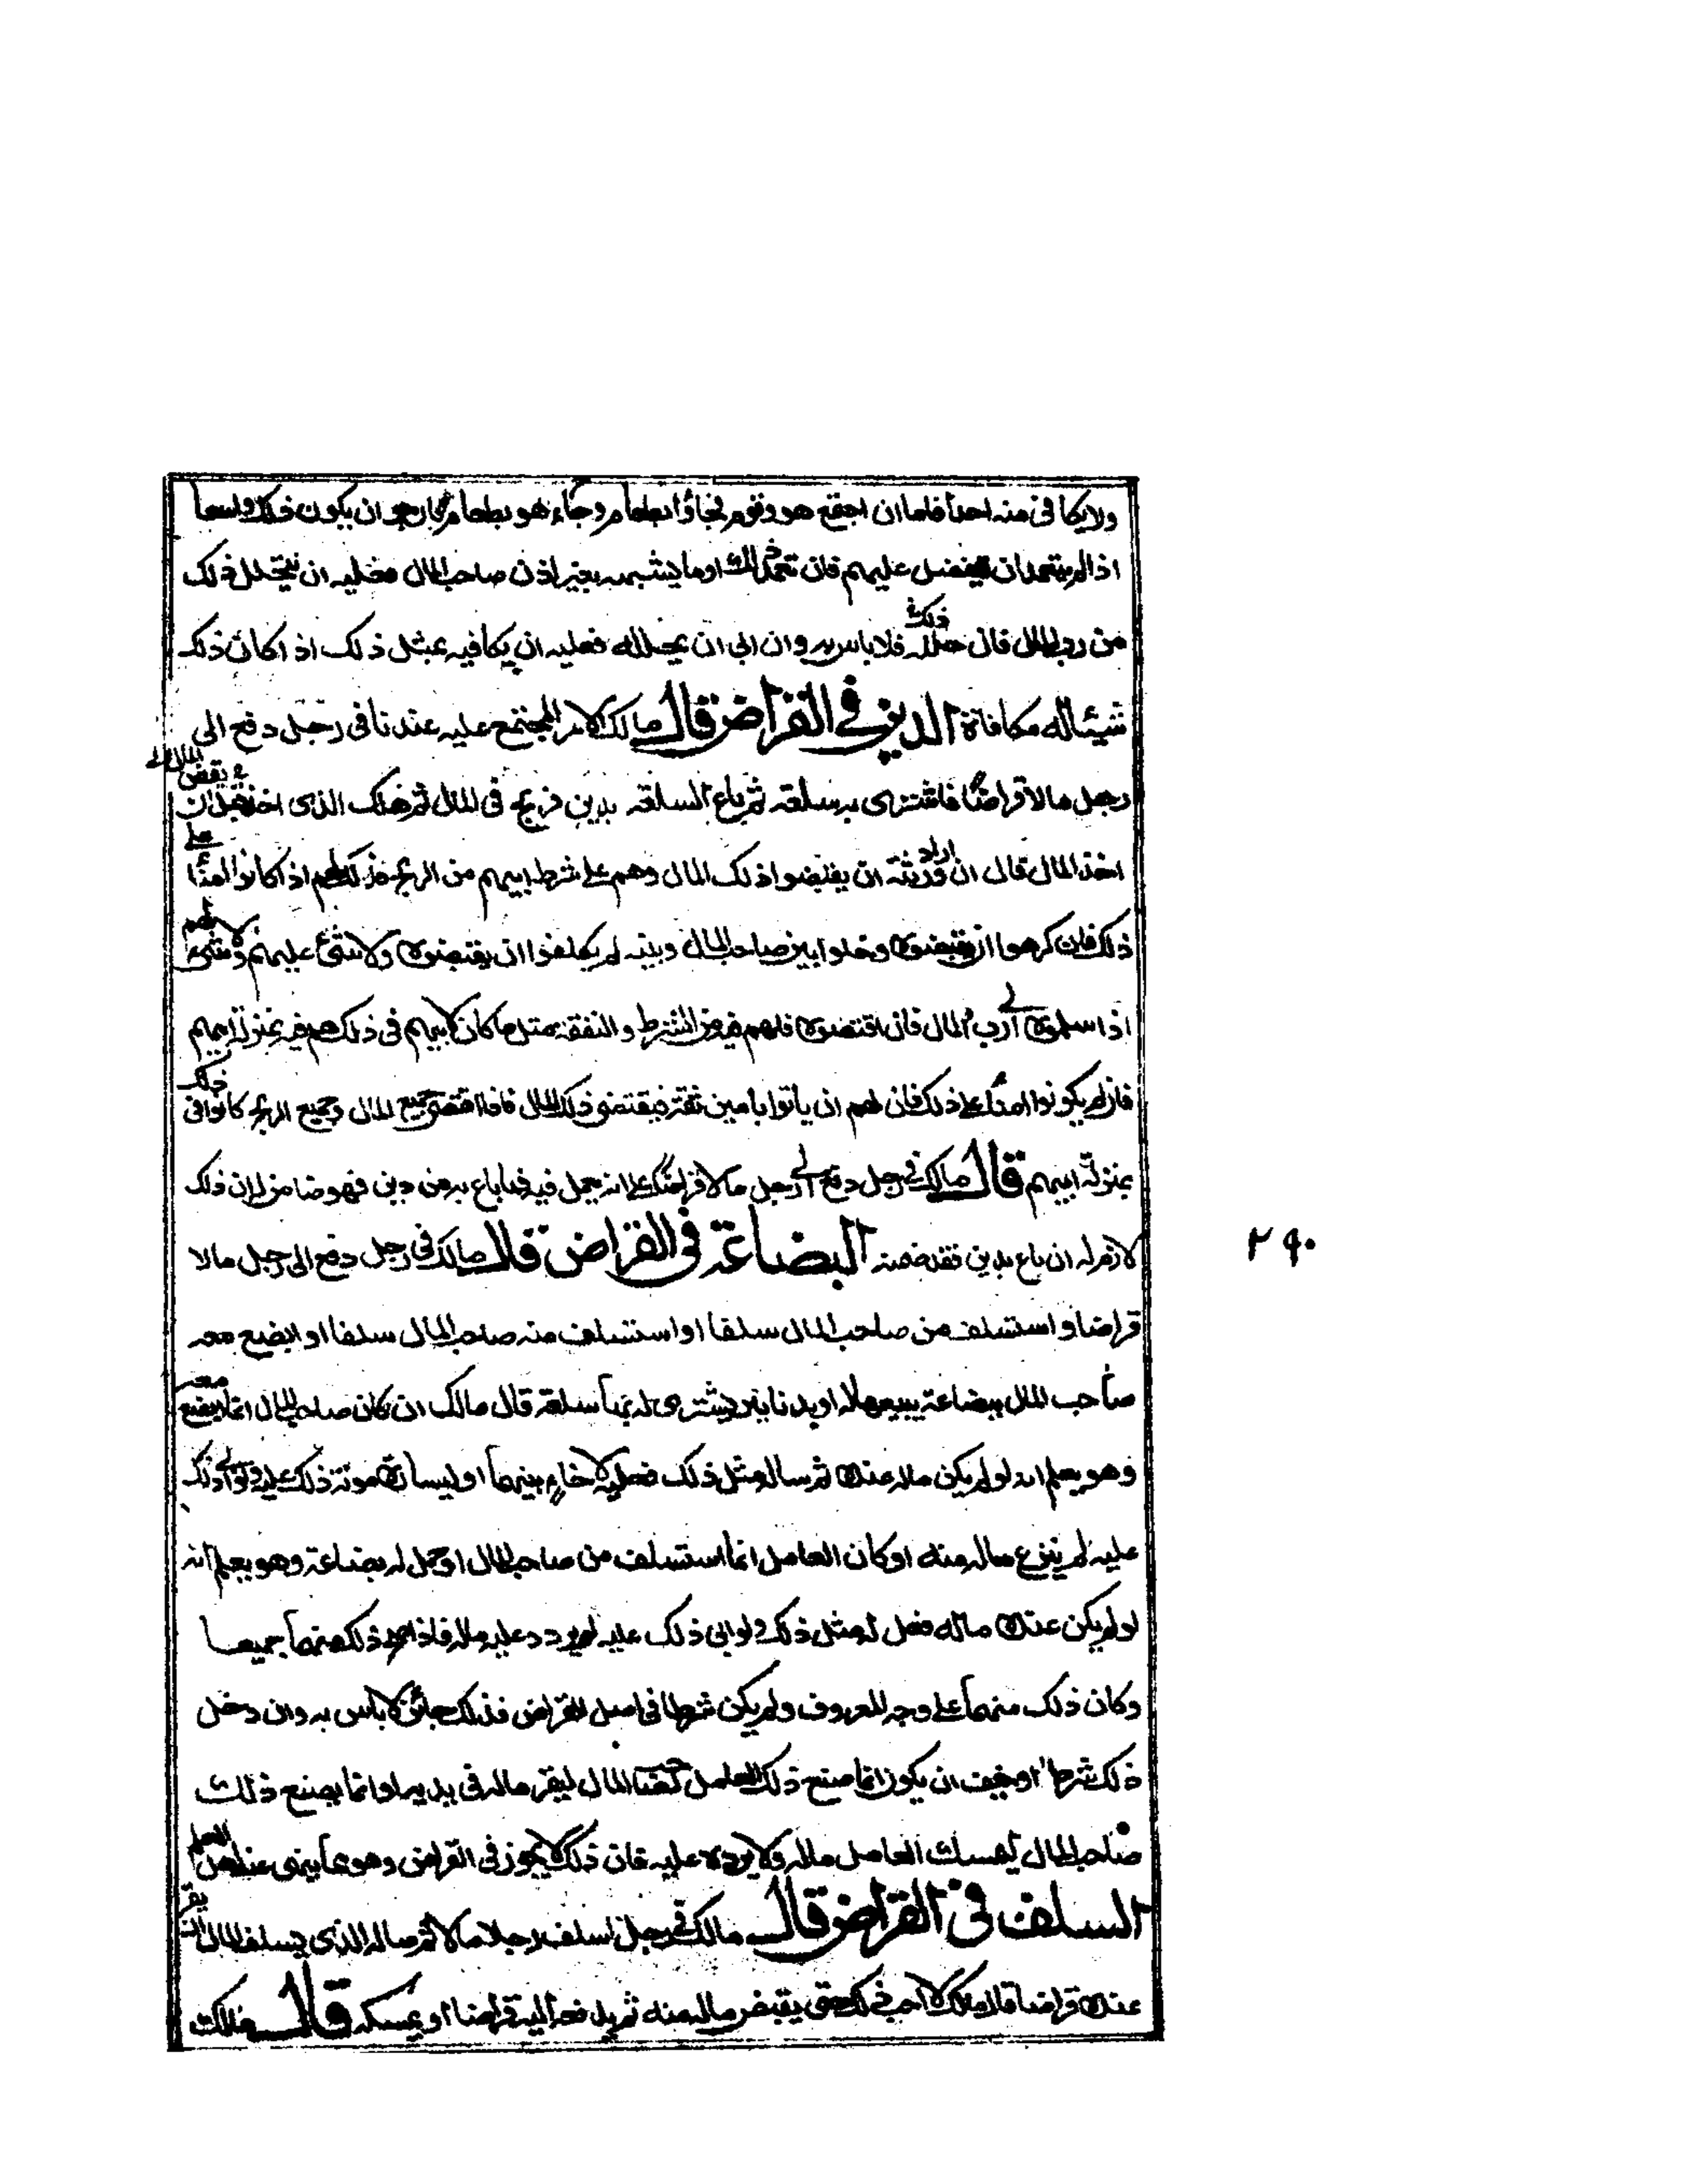 ولا يكافى منه احدا فاما ان اجتمع هو وقوم فجاؤا بطعام وجاء هو بطعام فارجو ان يكون ذلك واسعا
اذا لم يتعمد ان يتفضل عليهم فان تعمد ذلك او ما يشبهه بغير اذن صاحب المال فعليه ان يتحلل ذلك
من رب المال فان حلله ذلك فلا باس به وان ابى ان يحلله فعليه ان يكافيه بمثل ذلك اذا كان ذلك
شيئا له مكافاة الدين في القراض قال مالك الامر المجتمع عليه عندنا في رجل دفع الى
رجل مالا قراضا فاشترى به سلعة ثم باع السلعة بدين فربح في المال ثم هلك الذى اخذ المال قبل ان يقبض
المال قال ان اراد ورثته ان يقتضوا ذلك المال وهم على شرط ابيهم من الربح فذلك لهم اذا كانوا امنا على
ذلك فان كرهوا ان يقتضوه وخلوا بين صاحب المال وبينه لم يكلفوا ان يقتضوه ولا شئ عليهم ولا شئ لهم
اذا اسلموه الى رب المال فان اقتضوه فلهم فيه من الشرط والنفقة مثل ما كان لابيهم في ذلك هم فيه بمنزلة ابيهم
فان لم يكونوا امنا على ذلك فان لهم ان ياتوا بامين ثقة فيقتضى ذلك المال فاذا اقتضى جميع المال وجميع الربح كانوا في ذلك
بمنزلة ابيهم قال مالك في رجل دفع الى رجل مالا قراضا على انه يعمل فيه فما باع به من دين فهو ضامن له ان ذلك
لازم له ان باع بدين فقد ضمنه البضاعة في القراض قال مالك في رجل دفع الى رجل مالا
قراضا واستسلف من صاحب المال سلفا او استسلف منه صاحب المال سلفا او ابضع معه
صاحب المال ببضاعة يبيعها له او بدنانير يشترى له بها سلعة قال مالك ان كان صاحب المال انما ابضع معه
وهو يعلم انه لو لم يكن ماله عنده ثم ساله مثل ذلك فعله لاخاء بينهما او ليسارة مونة ذلك عليه ولو ابى ذلك
عليه لم ينزع ماله منه او كان العامل انما استسلف من صاحب المال او حمل له بضاعة وهو يعلم انه
لو لم يكن عنده ماله فعل له مثل ذلك ولو ابى ذلك عليه لم يردد عليه ماله فاذا صح ذلك منهما جميعا
وكان ذلك منهما على وجه المعروف ولم يكن شرطا في اصل القراض فذلك جائز لا باس به وان دخل
ذلك شرط او خيف ان يكون انما صنع ذلك العامل لصاحب المال ليقر ماله في يديه او انما يصنع ذلك
صاحب المال ليمسك العامل ماله ولا يرده عليه فان ذلك لا يجوز في القراض وهو مما ينهى عنه اهل العلم
السلف في القراض قال مالك في رجل اسلف رجلا مالا ثم ساله الذى يسلف المال ان يقر
عنده قراضا قال مالك لا احب ذلك حتى يقبض ماله منه ثم يدفعه اليه قراضا او يمسكه قال مالك
٢٩٠